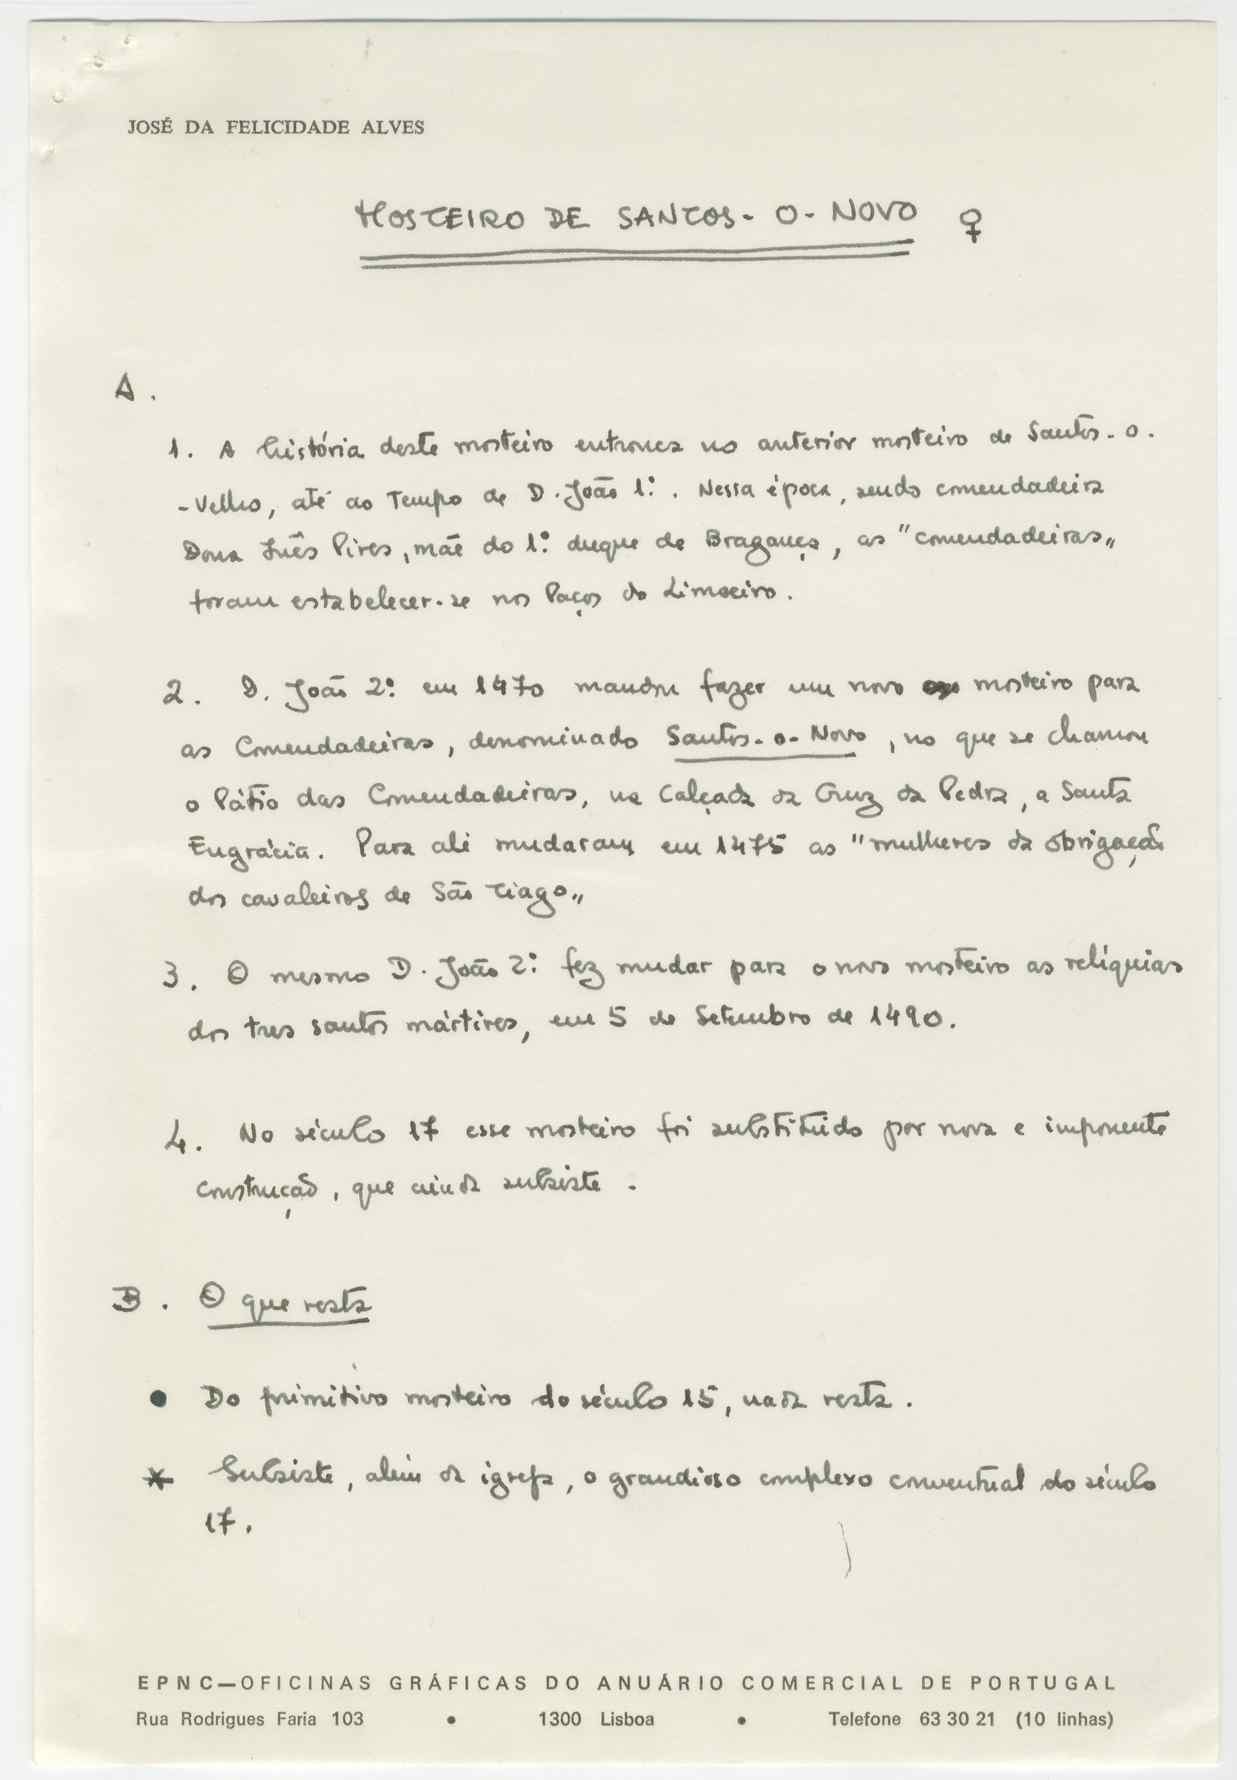 JOSÉ DA FELICIDADE ALVES
MOSTEIRO DE SANTOS-O-NOVO ♀
A.
1. A história deste mosteiro entronca no anterior mosteiro de Santos-o-
-Velho, até ao Tempo de D. João 1º. Nessa época, sendo comendadeira
Dona Inês Pires, mãe do 1º duque de Bragança, as "comendadeiras„
foram estabelecer-se nos Paços do Limoeiro.
2. D. João 2º em 1470 mandou fazer um novo mosteiro para
as Comendadeiras, denominado Santos-o-Novo, no que se chamou
o Pátio das Comendadeiras, na Calçada da Cruz da Pedra, a Santa
Engrácia. Para ali mudaram em 1475 as "mulheres da obrigação
dos cavaleiros de São Tiago„
3. O mesmo D. João 2º fez mudar para o novo mosteiro as relíquias
dos tres santos mártires, em 5 de Setembro de 1490.
4. No século 17 esse mosteiro foi substituido por nova e imponente
construção, que ainda subsiste.
B. O que resta
● Do primitivo mosteiro do século 15, nada resta.
* Subsiste, além da igreja, o grandioso complexo conventual do século
17.
EPNC—OFICINAS GRÁFICAS DO ANUÁRIO COMERCIAL DE PORTUGAL
Rua Rodrigues Faria 103 • 1300 Lisboa • Telefone 63 30 21 (10 linhas)